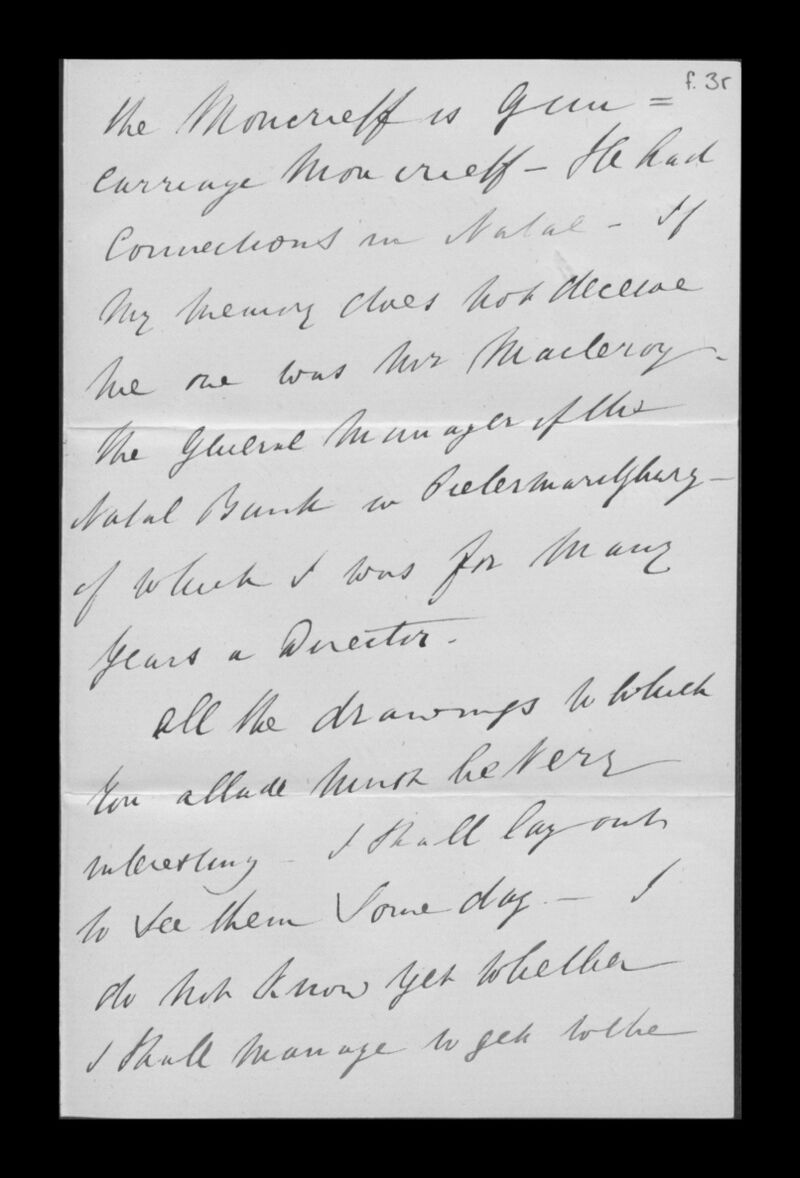 f. 3r
the Moncrieff is Gun =
carriage Moncrieff – He had
Connections in Natal – If
my memory does not deceive
me one was Mr Macleroy –
the General Manager of the
Natal Bank in Pietermaritzburg –
of which I was for many
years a Director.
All the drawings to which
you allude must be very
interesting – I shall lay out
to see them some day – I
do not know yet whether
I shall manage to get to the